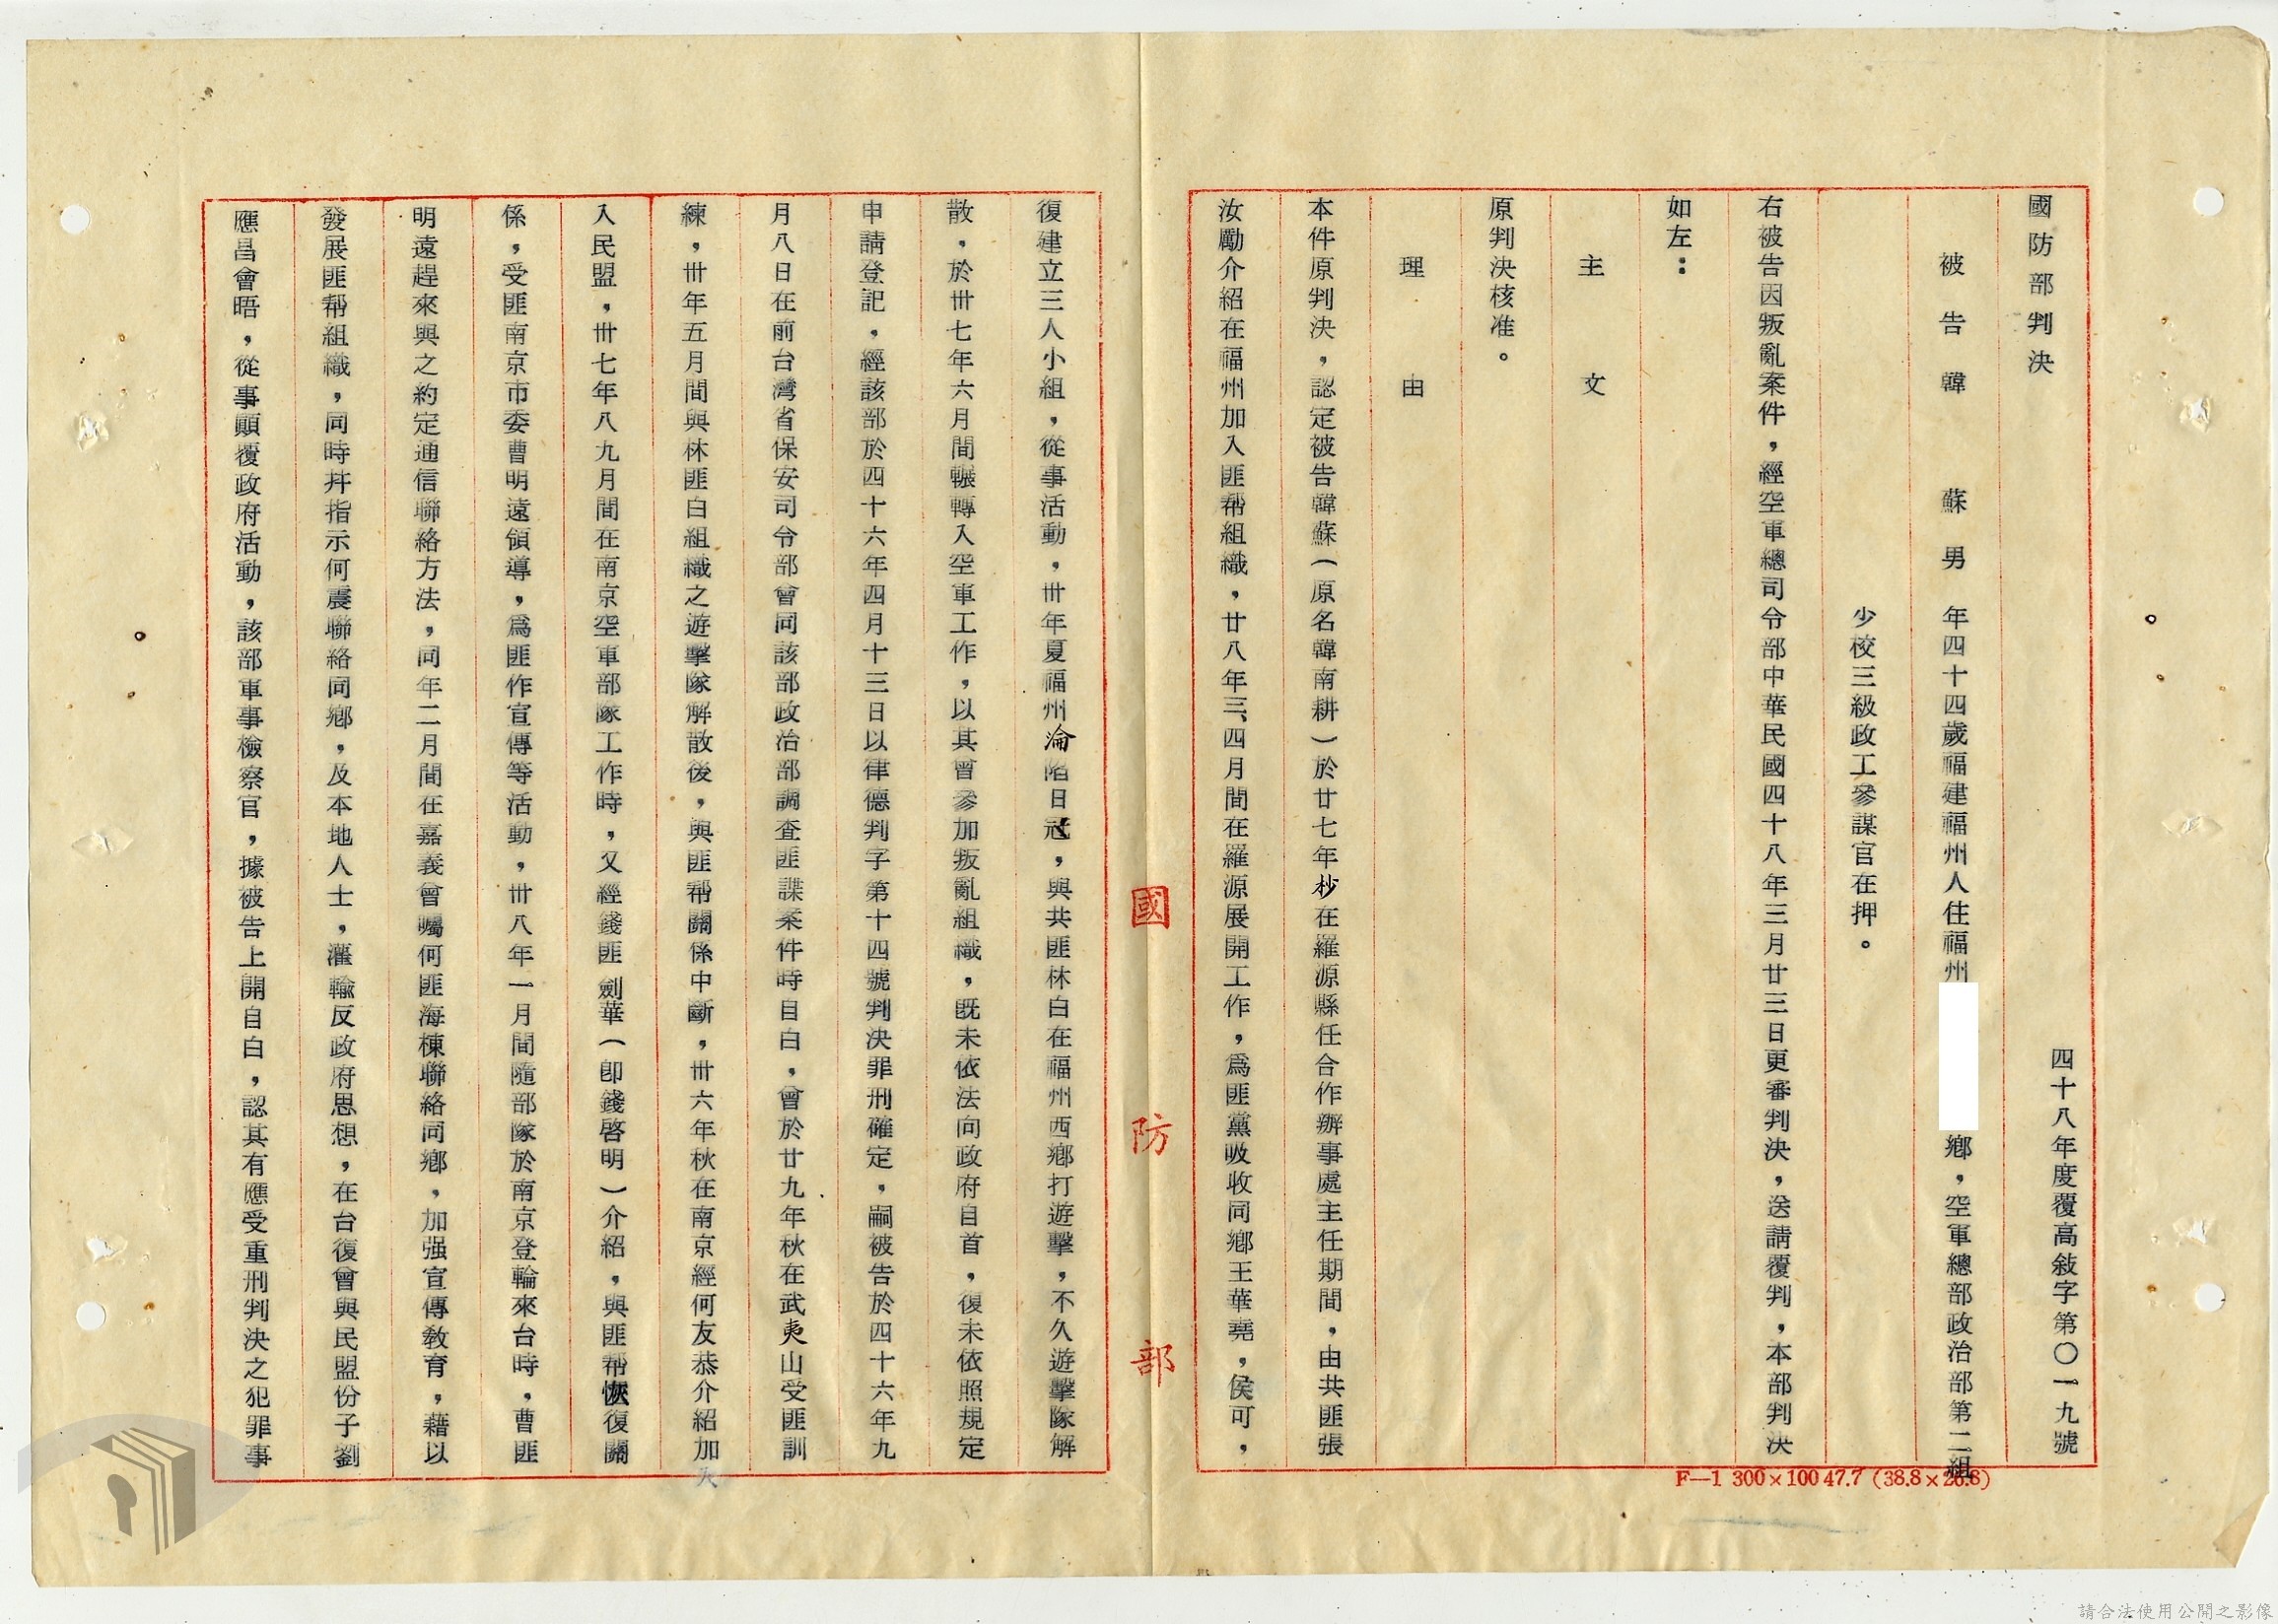 國防部判決
四十八年度覆高敍字第〇一九號
被告韓　蘇男　年四十四歲福建福州人住福州　鄉，空軍總部政治部第二組
少校三級政工參謀官在押。
右被告因叛亂案件，經空軍總司令部中華民國四十八年三月廿三日更審判決，送請覆判，本部判決
如左：
主　文
原判決核准。
理　由
本件原判決，認定被告韓蘇（原名韓南耕）於廿七年杪在羅源縣任合作辦事處主任期間，由共匪張
汝勵介紹在福州加入匪幫組織，廿八年三、四月間在羅源展開工作，爲匪黨吸收同鄉王華堯，侯可，
國防部
F—1 300×100 47.7 (38.8×26.8)
復建立三人小組，從事活動，卅年夏福州淪陷日寇，與共匪林白在福州西鄉打遊擊，不久遊擊隊解
散，於卅七年六月間輾轉入空軍工作，以其曾參加叛亂組織，既未依法向政府自首，復未依照規定
申請登記，經該部於四十六年四月十三日以律德判字第十四號判決罪刑確定，嗣被告於四十六年九
月八日在前台灣省保安司令部會同該部政治部調查匪諜案件時自白，曾於廿九年秋在武夷山受匪訓
練，卅年五月間與林匪白組織之遊擊隊解散後，與匪幫關係中斷，卅六年秋在南京經何友恭介紹加
入民盟，卅七年八九月間在南京空軍部隊工作時，又經錢匪劍華（卽錢啓明）介紹，與匪幫恢復關
係，受匪南京市委曹明遠領導，爲匪作宣傳等活動，卅八年一月間隨部隊於南京登輪來台時，曹匪
明遠趕來與之約定通信聯絡方法，同年二月間在嘉義曾囑何匪海棟聯絡同鄉，加强宣傳敎育，藉以
發展匪幫組織，同時幷指示何震聯絡同鄉，及本地人士，灌輸反政府思想，在台復曾與民盟份子劉
應昌會晤，從事顚覆政府活動，該部軍事檢察官，據被告上開自白，認其有應受重刑判決之犯罪事
請合法使用公開之影像